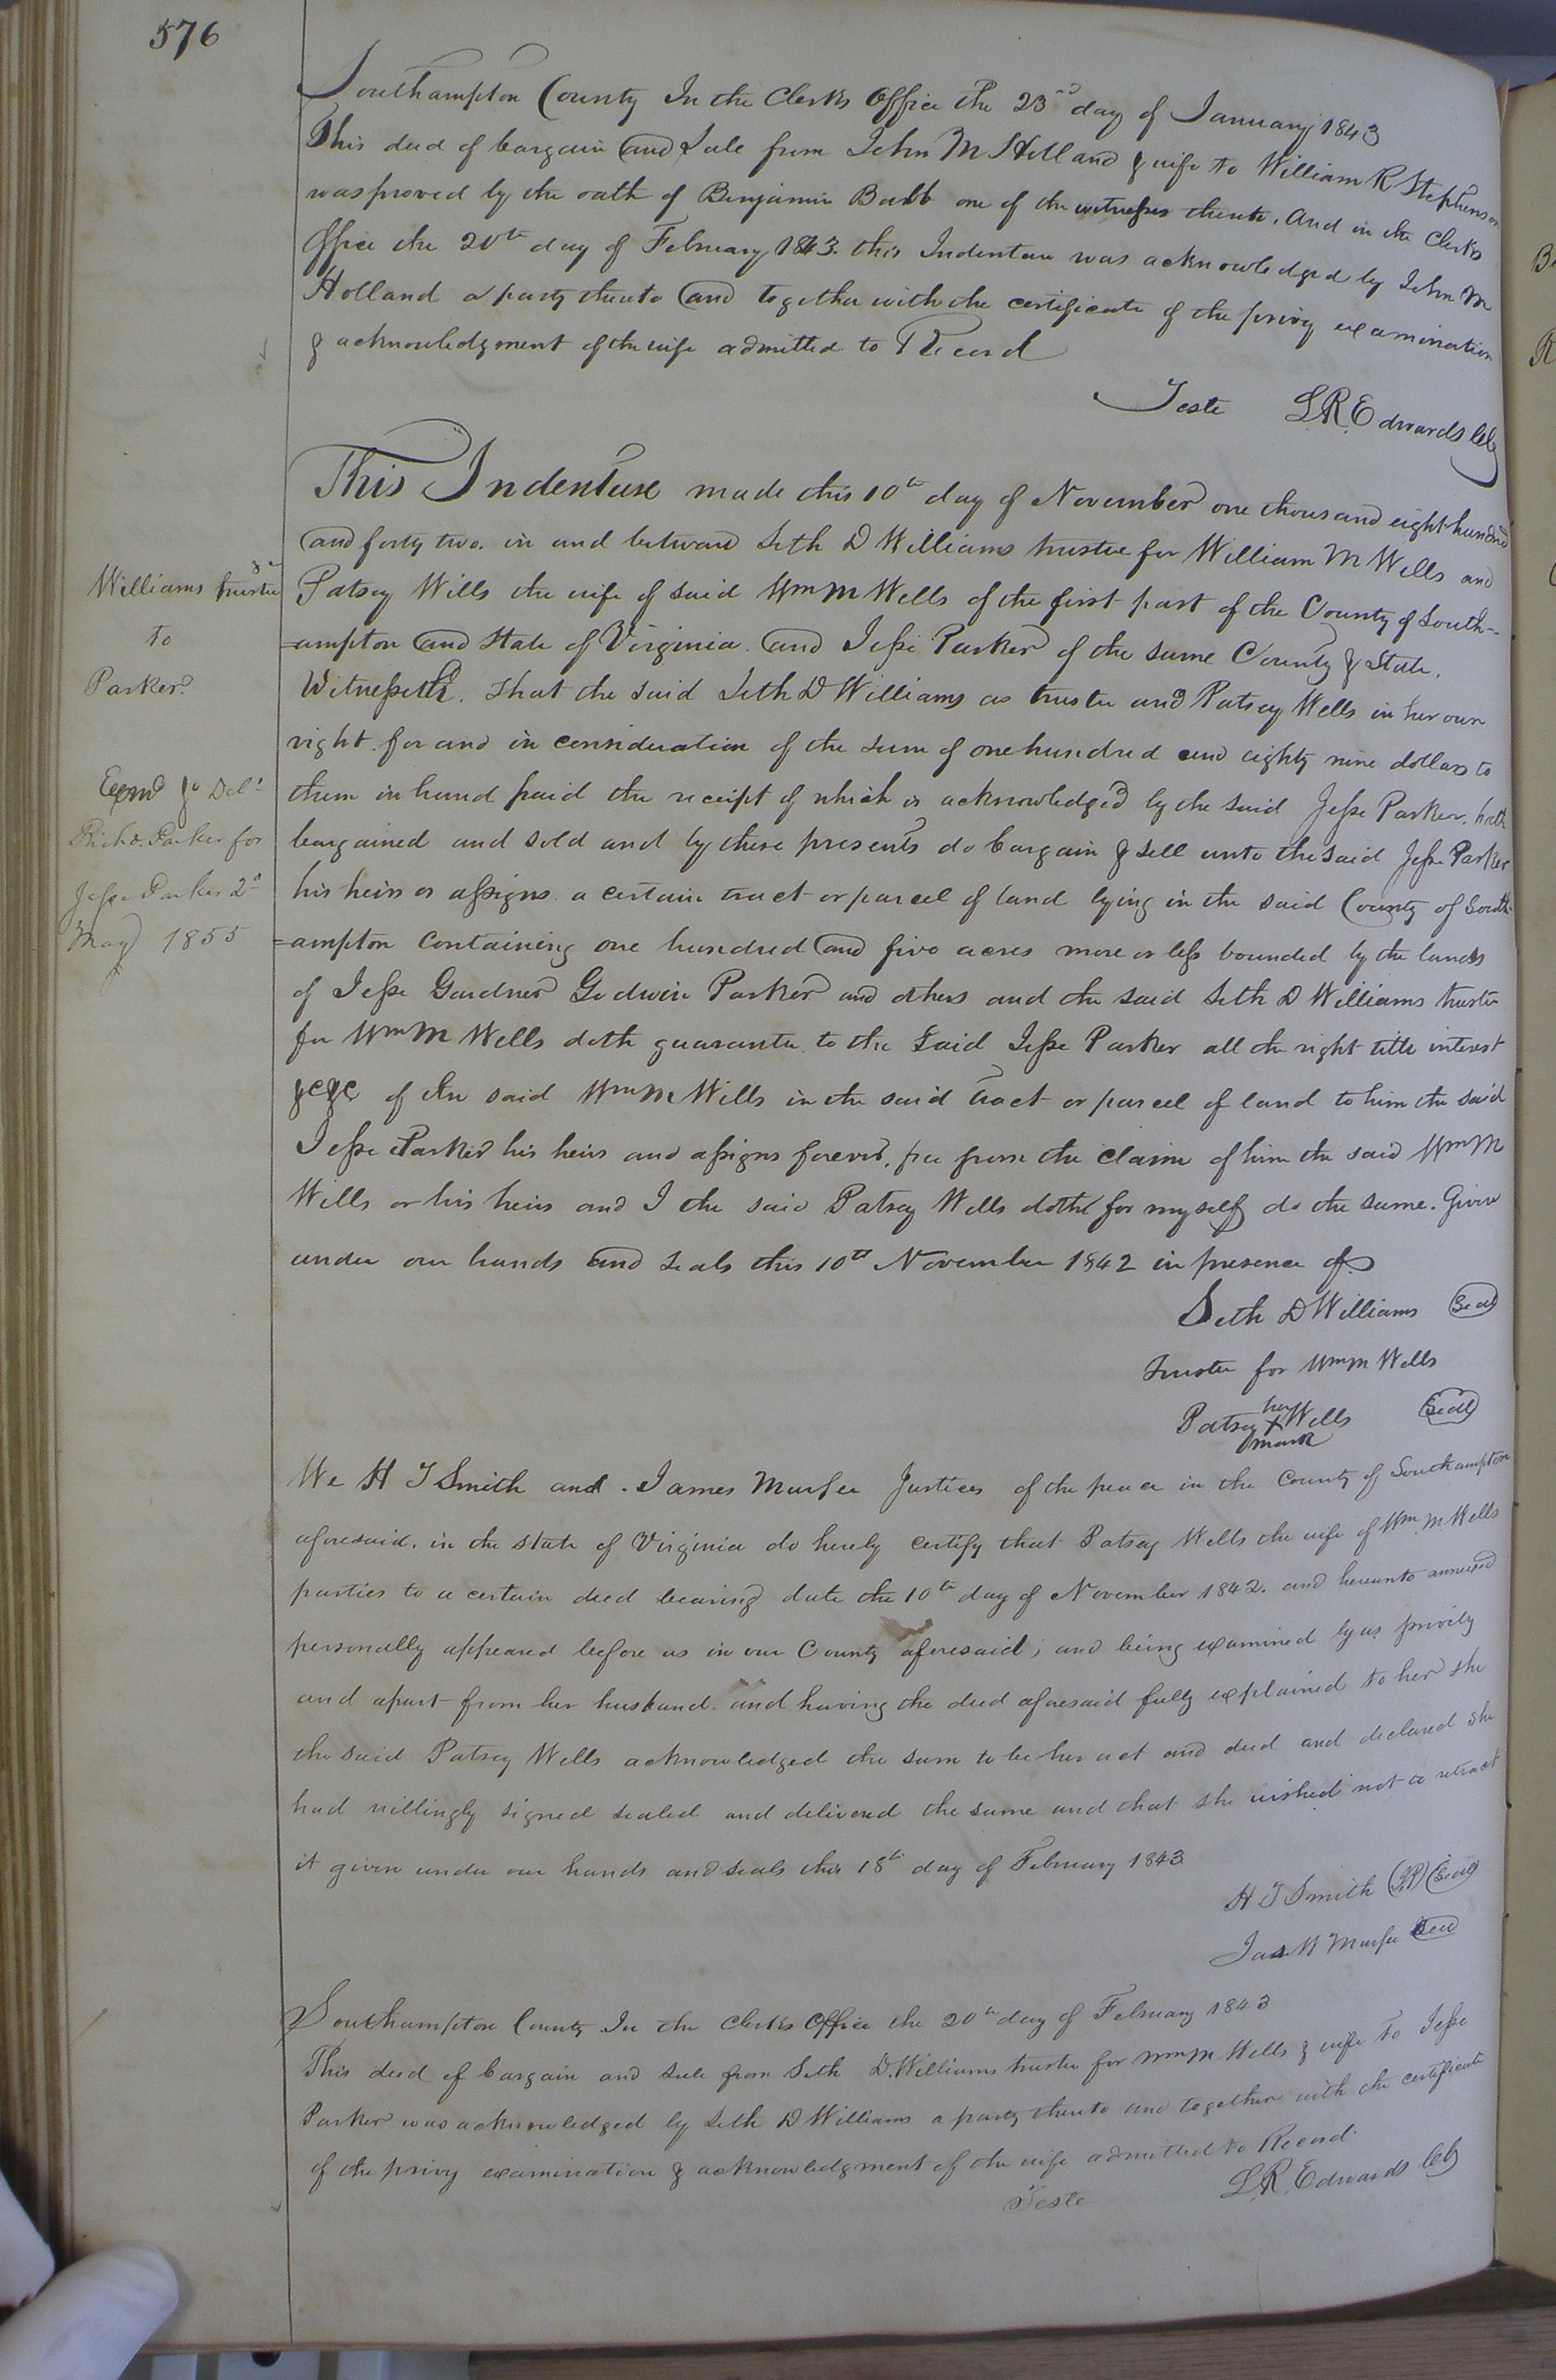 576
Southampton County In the Clerks Office the 23rd day of January 1843
This deed of bargain and Sale from John M Holland & wife to William R Stephenson
was proved by the oath of Benjamin Babb one of the witnesses thereto. And in the Clerks
Office the 20th day of February 1843. this Indenture was acknowledged by John M
Holland a party thereto and together with the certificate of the privy examination
& acknowledgment of the wife admitted to Record
Teste L.R. Edwards Clk
This Indenture made this 10th day of November one thousand eight hundred
and forty two. in and between Seth D Williams trustee for William M Wells and
Patsey Wells the wife of said Wm M Wells of the first part of the County of South-
=ampton and State of Virginia. and Jesse Parker of the same County & State.
Witnesseth. That the said Seth D Williams as trustee and Patsey Wells in her own
right. for and in consideration of the sum of one hundred and eighty nine dollars to
them in hand paid the receipt of which is acknowledged by the said Jesse Parker. hath
bargained and sold and by these presents do bargain & sell unto the said Jesse Parker
his heirs or assigns a certain tract or parcel of land lying in the said County of South
=ampton Containing one hundred and five acres more or less bounded by the lands
of Jesse Gardner Godwin Parker and others and the said Seth D Williams trustee
for Wm M Wells doth guarantee to the Said Jesse Parker all the right title interest
&c&c of the said Wm M Wells in the said tract or parcel of land to him the said
Jesse Parker his heirs and assigns forever. free from the claim of him the said Wm M
Wells or his heirs and I the said Patsey Wells doth for myself do the same. Given
under our hands and seals this 10th November 1842 in presence of
Seth D Williams Seal
Trustee for Wm M Wells
Patsey her X mark Wells Seal
Williams trustee &c
to
Parker
Exmd & Deld
Richd. Parker for
Jesse Parker 2d
May 1855
We H T Smith and James Murfee Justices of the peace in the County of Southampton
aforesaid. in the State of Virginia do hereby certify that Patsey Wells the wife of Wm. M Wells
parties to a certain deed bearing date the 10th day of November 1842. and hereunto annexed
personally appeared before us in our County aforesaid; and being examined by us privily
and apart from her husband. and having the deed aforesaid fully explained to her she
the said Patsey Wells acknowledged the same to be her act and deed and declared she
had willingly signed sealed and delivered the same and that she wished not to retract
it given under our hands and seals this 18th day of February 1843
H T Smith JP Seal
Jas H Murfee Seal
Southampton County In the Clerks Office the 20th day of February 1843
This deed of bargain and sale from Seth D. Williams trustee for Wm M Wells & wife to Jesse
Parker was acknowledged by Seth D Williams a party thereto and together with the certificate
of the privy examination & acknowledgment of the wife admitted to Record.
Teste L.R. Edwards Clk